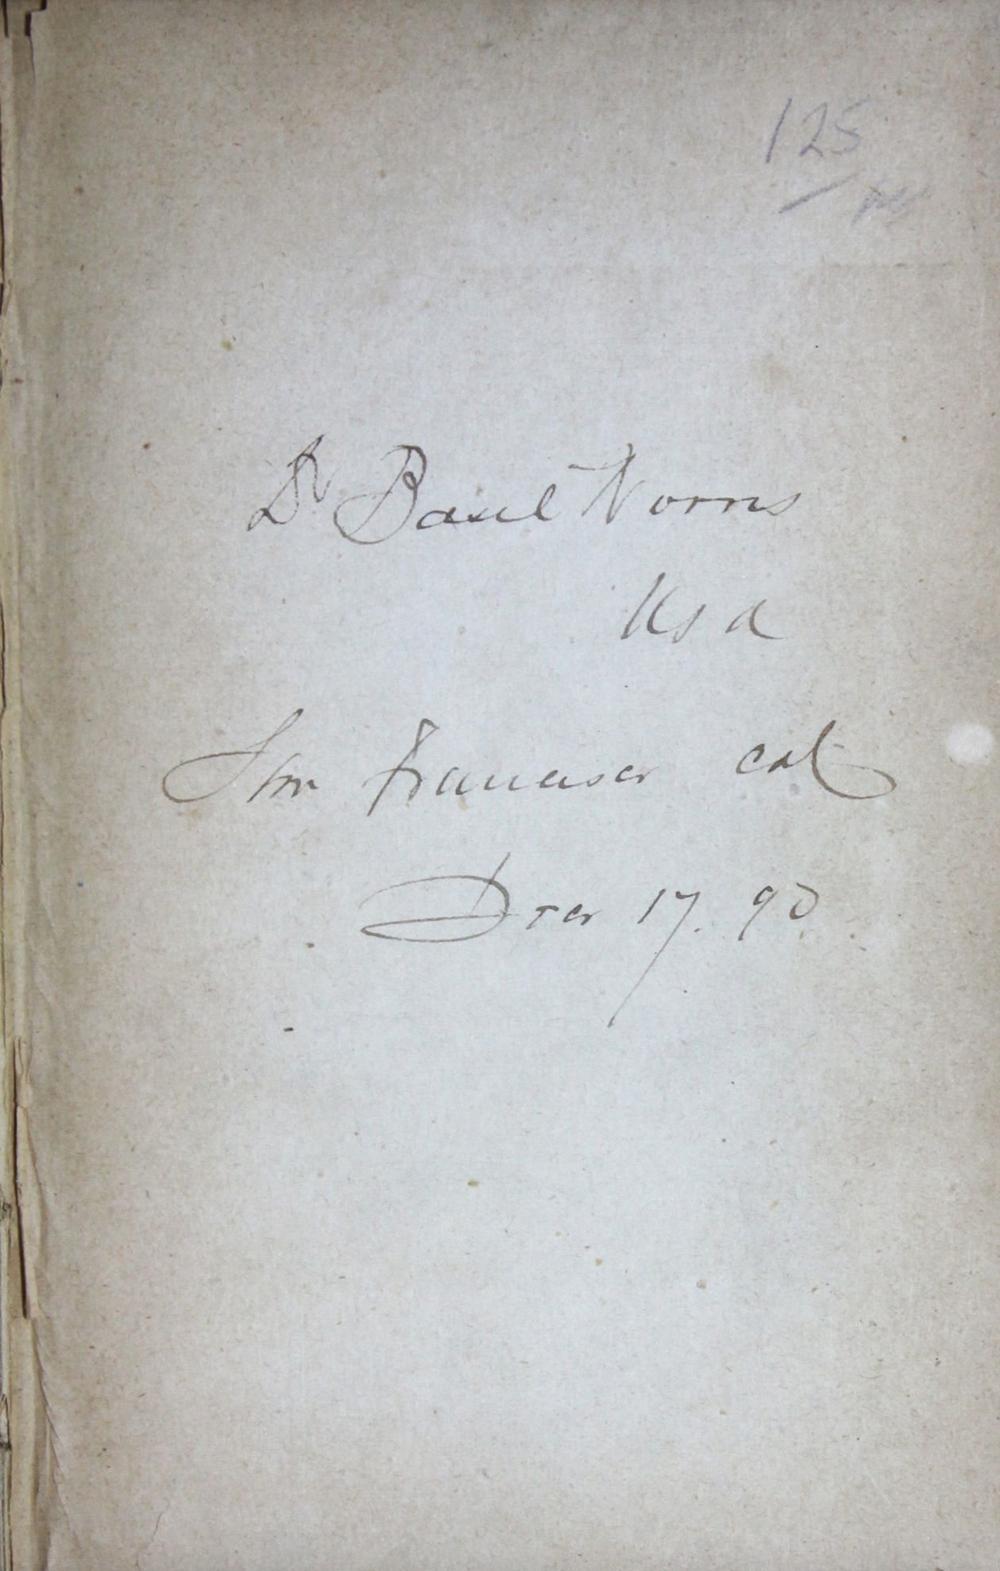 125
Dr Basil Norris
USA
San Francisco Cal
Decr 17. 90